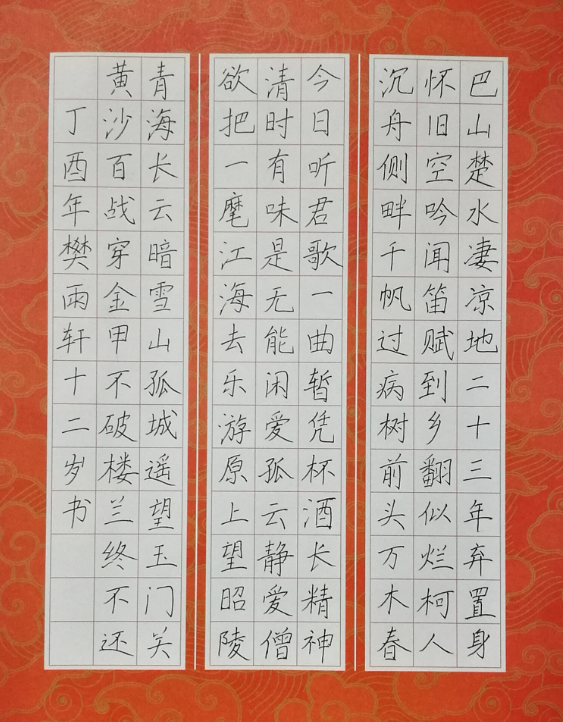 巴山楚水凄凉地二十三年弃置身
怀旧空吟闻笛赋到乡翻似烂柯人
沉舟侧畔千帆过病树前头万木春
今日听君歌一曲暂凭杯酒长精神
清时有味是无能闲爱孤云静爱僧
欲把一麾江海去乐游原上望昭陵
青海长云暗雪山孤城遥望玉门关
黄沙百战穿金甲不破楼兰终不还
丁酉年樊雨轩十二岁书